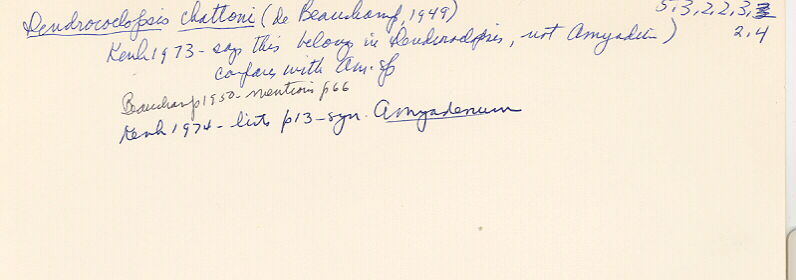 Dendrocoelopsis chattoni (de Beauchamp, 1949) 5.3.2.2.3.3
Kenk 1973 - says this belongs in Dendrocoelopsis, not Amyadenium) 2.4
compares with Am. sp
Beauchamp 1950 - mentions p66
Kenk 1974 - lists p13 - syn. Amyadenium